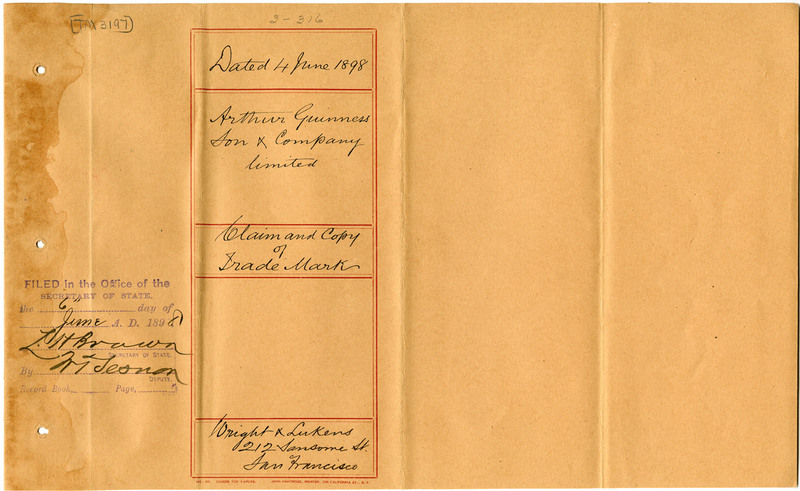 TAX3197
3-316
Dated 4 June 1898
Arthur Guinness
Son & Company
limited
Claim and Copy
of
Trade Mark
Wright & Lukens
212 Sansome St.
San Francisco
FILED in the Office of the
SECRETARY OF STATE,
the 6" day of
June A. D. 1898
L. H. Brown
SECRETARY OF STATE.
By
DEPUTY.
Record Book, Page,